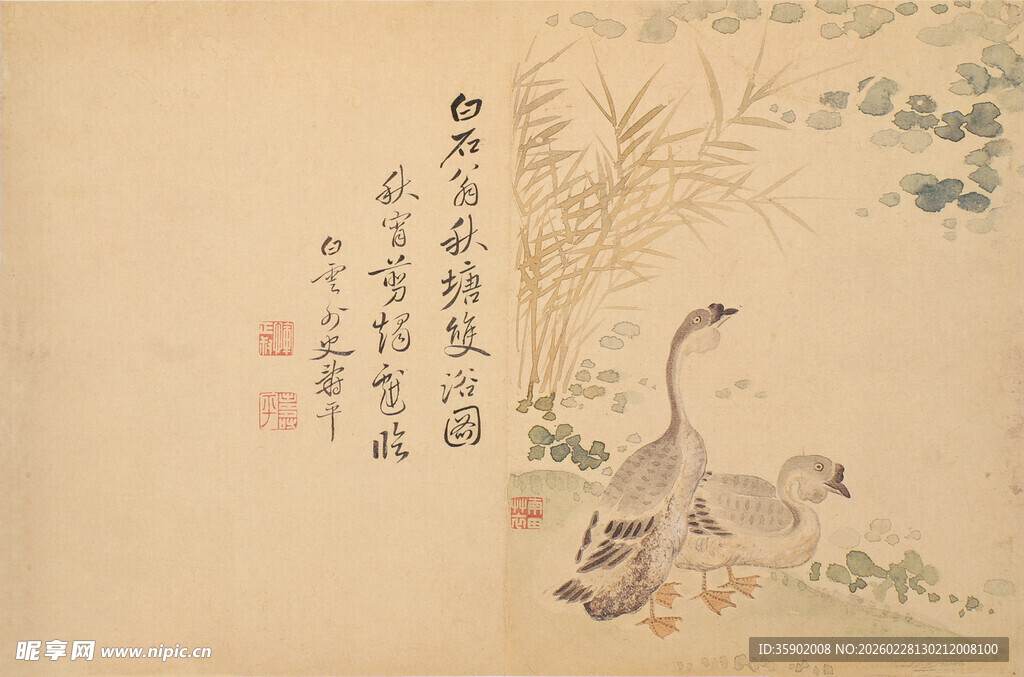 白石翁秋塘雙浴圖
秋宵剪燭戲臨
白雲外史壽平
惲正叔
壽平
南田草衣
昵享网 www.nipic.cn
ID:35902008 NO:20260228130212008100